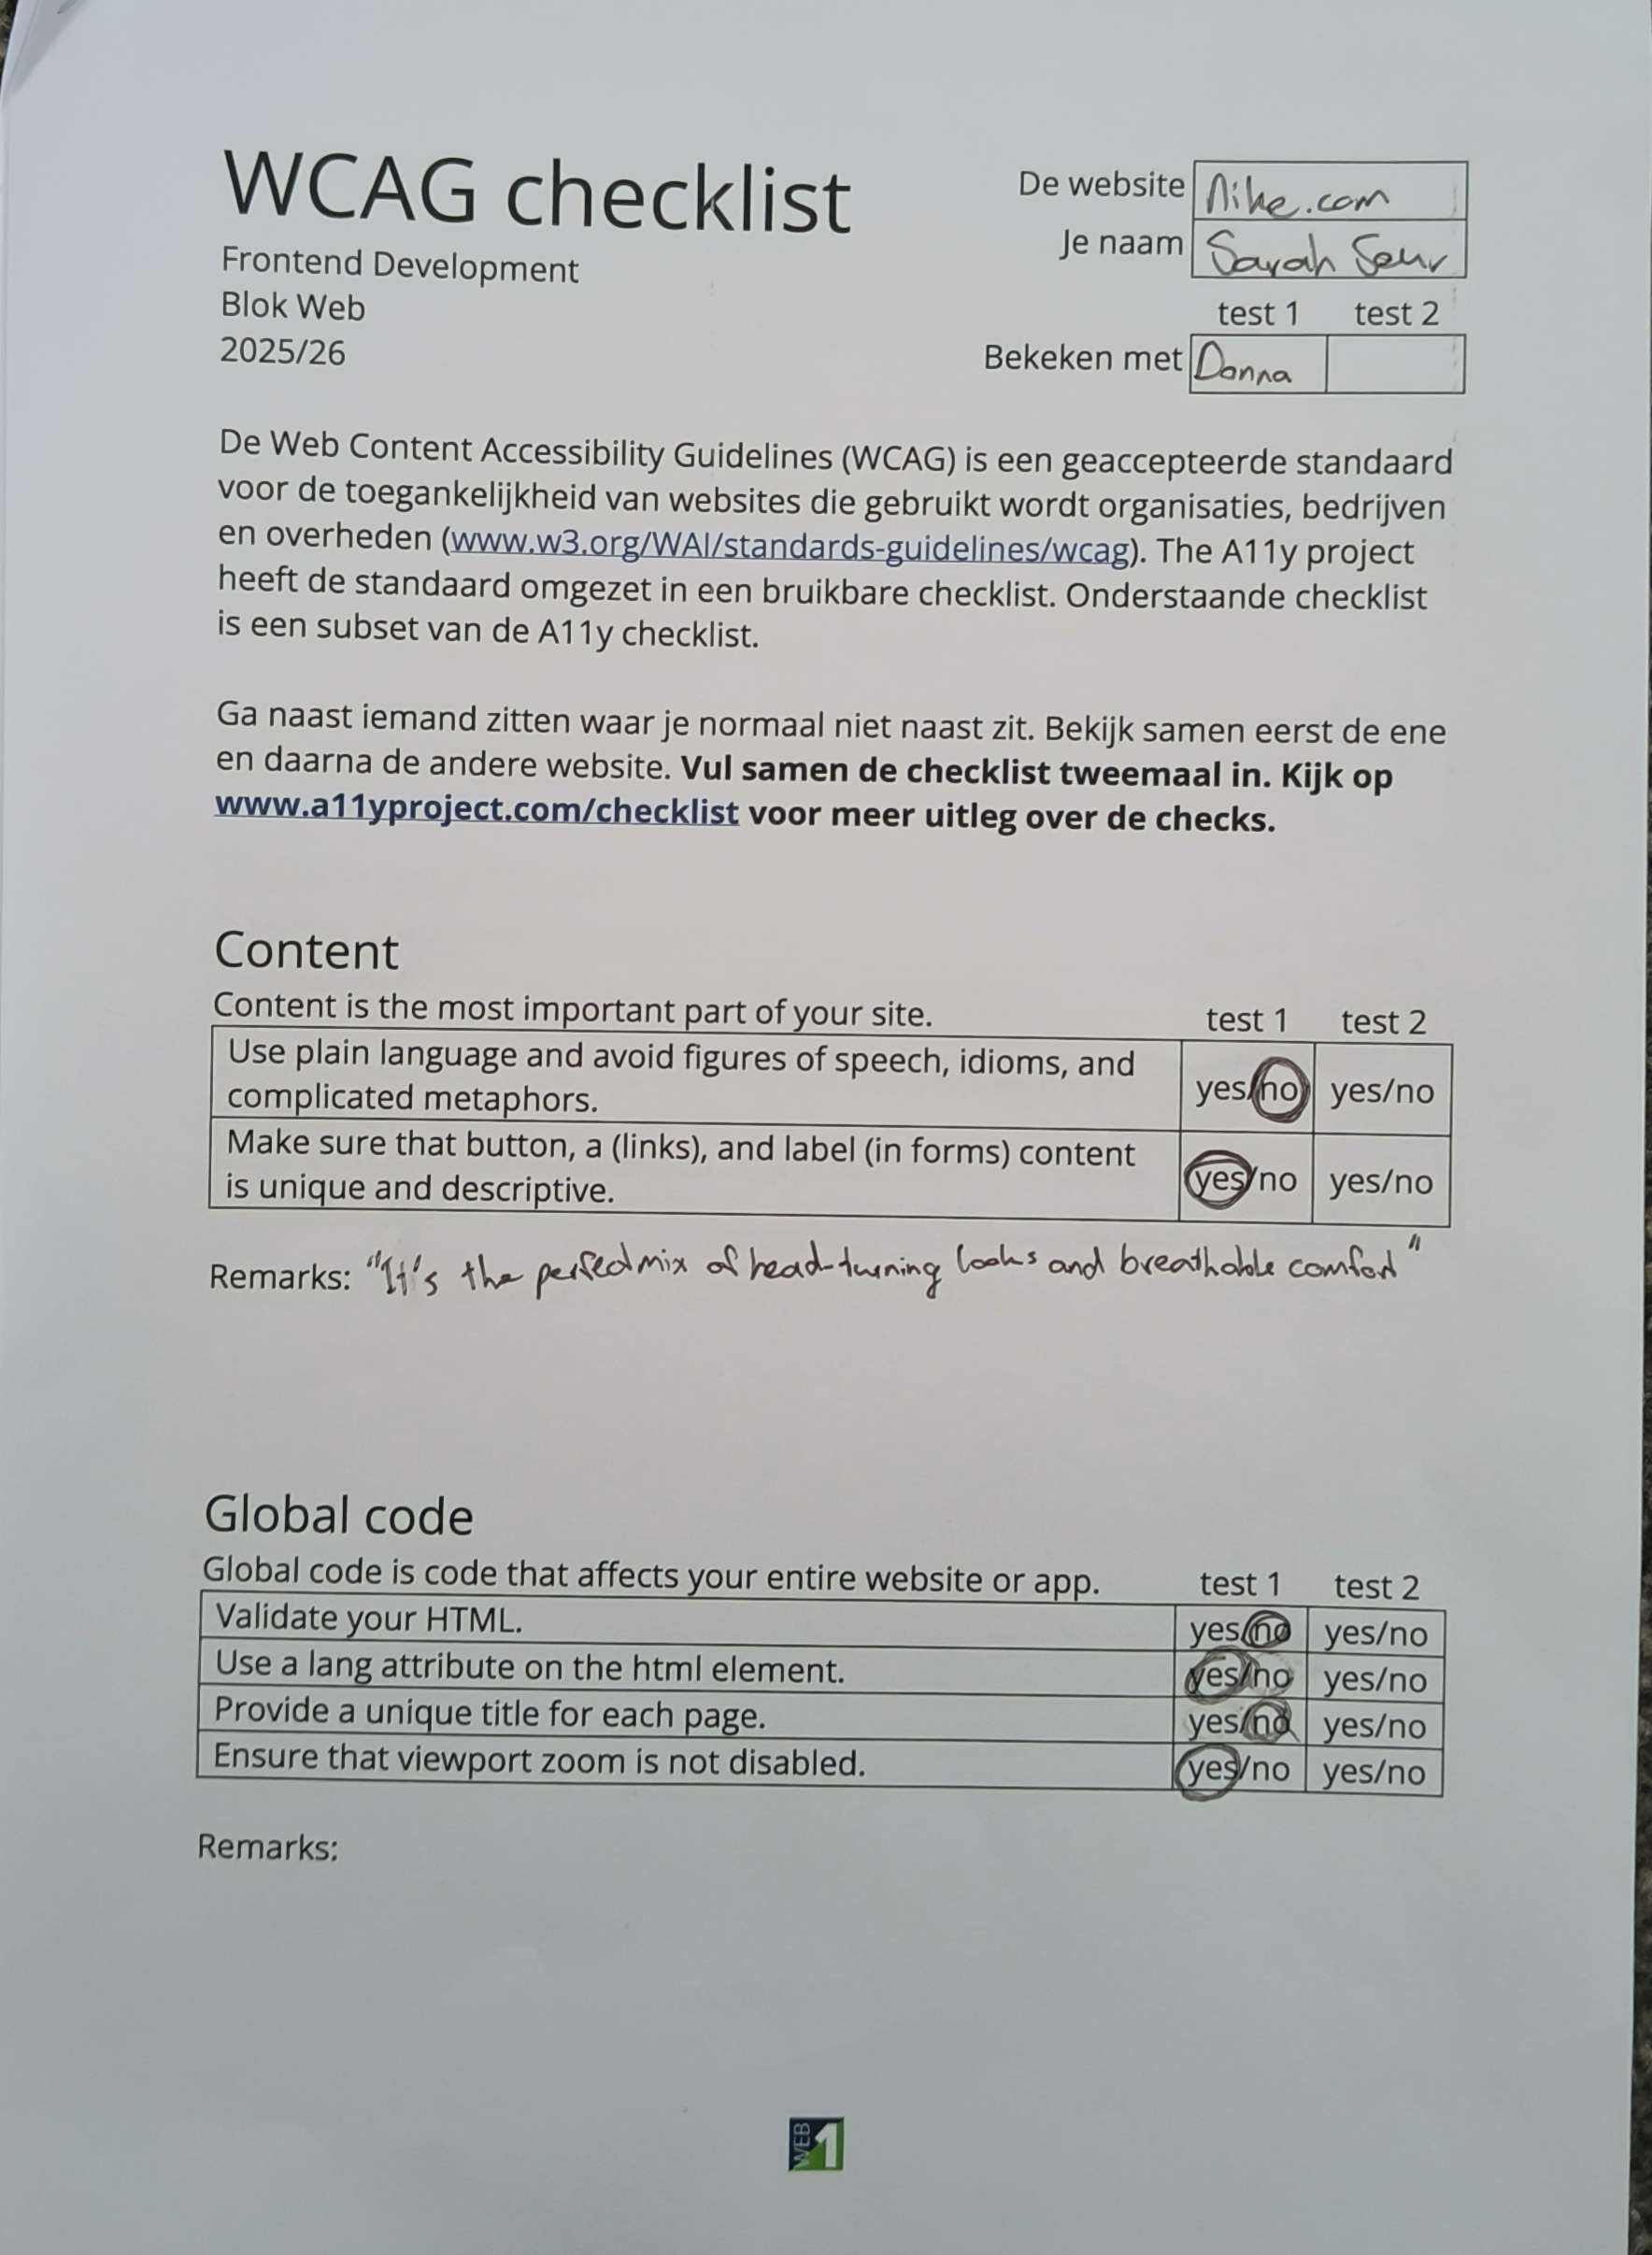 WCAG checklist
Frontend Development
Blok Web
2025/26
De website Nike.com
Je naam Sarah
test 1 test 2
Bekeken met Donna
De Web Content Accessibility Guidelines (WCAG) is een geaccepteerde standaard
voor de toegankelijkheid van websites die gebruikt wordt organisaties, bedrijven
en overheden (www.w3.org/WAI/standards-guidelines/wcag). The A11y project
heeft de standaard omgezet in een bruikbare checklist. Onderstaande checklist
is een subset van de A11y checklist.
Ga naast iemand zitten waar je normaal niet naast zit. Bekijk samen eerst de ene
en daarna de andere website. Vul samen de checklist tweemaal in. Kijk op
www.a11yproject.com/checklist voor meer uitleg over de checks.
Content
Content is the most important part of your site. test 1 test 2
Use plain language and avoid figures of speech, idioms, and
complicated metaphors. yes/no yes/no
Make sure that button, a (links), and label (in forms) content
is unique and descriptive. yes/no yes/no
Remarks: "It's the perfect mix of head-turning looks and breathable comfort"
Global code
Global code is code that affects your entire website or app. test 1 test 2
Validate your HTML. yes/no yes/no
Use a lang attribute on the html element. yes/no yes/no
Provide a unique title for each page. yes/no yes/no
Ensure that viewport zoom is not disabled. yes/no yes/no
Remarks:
WEB 1